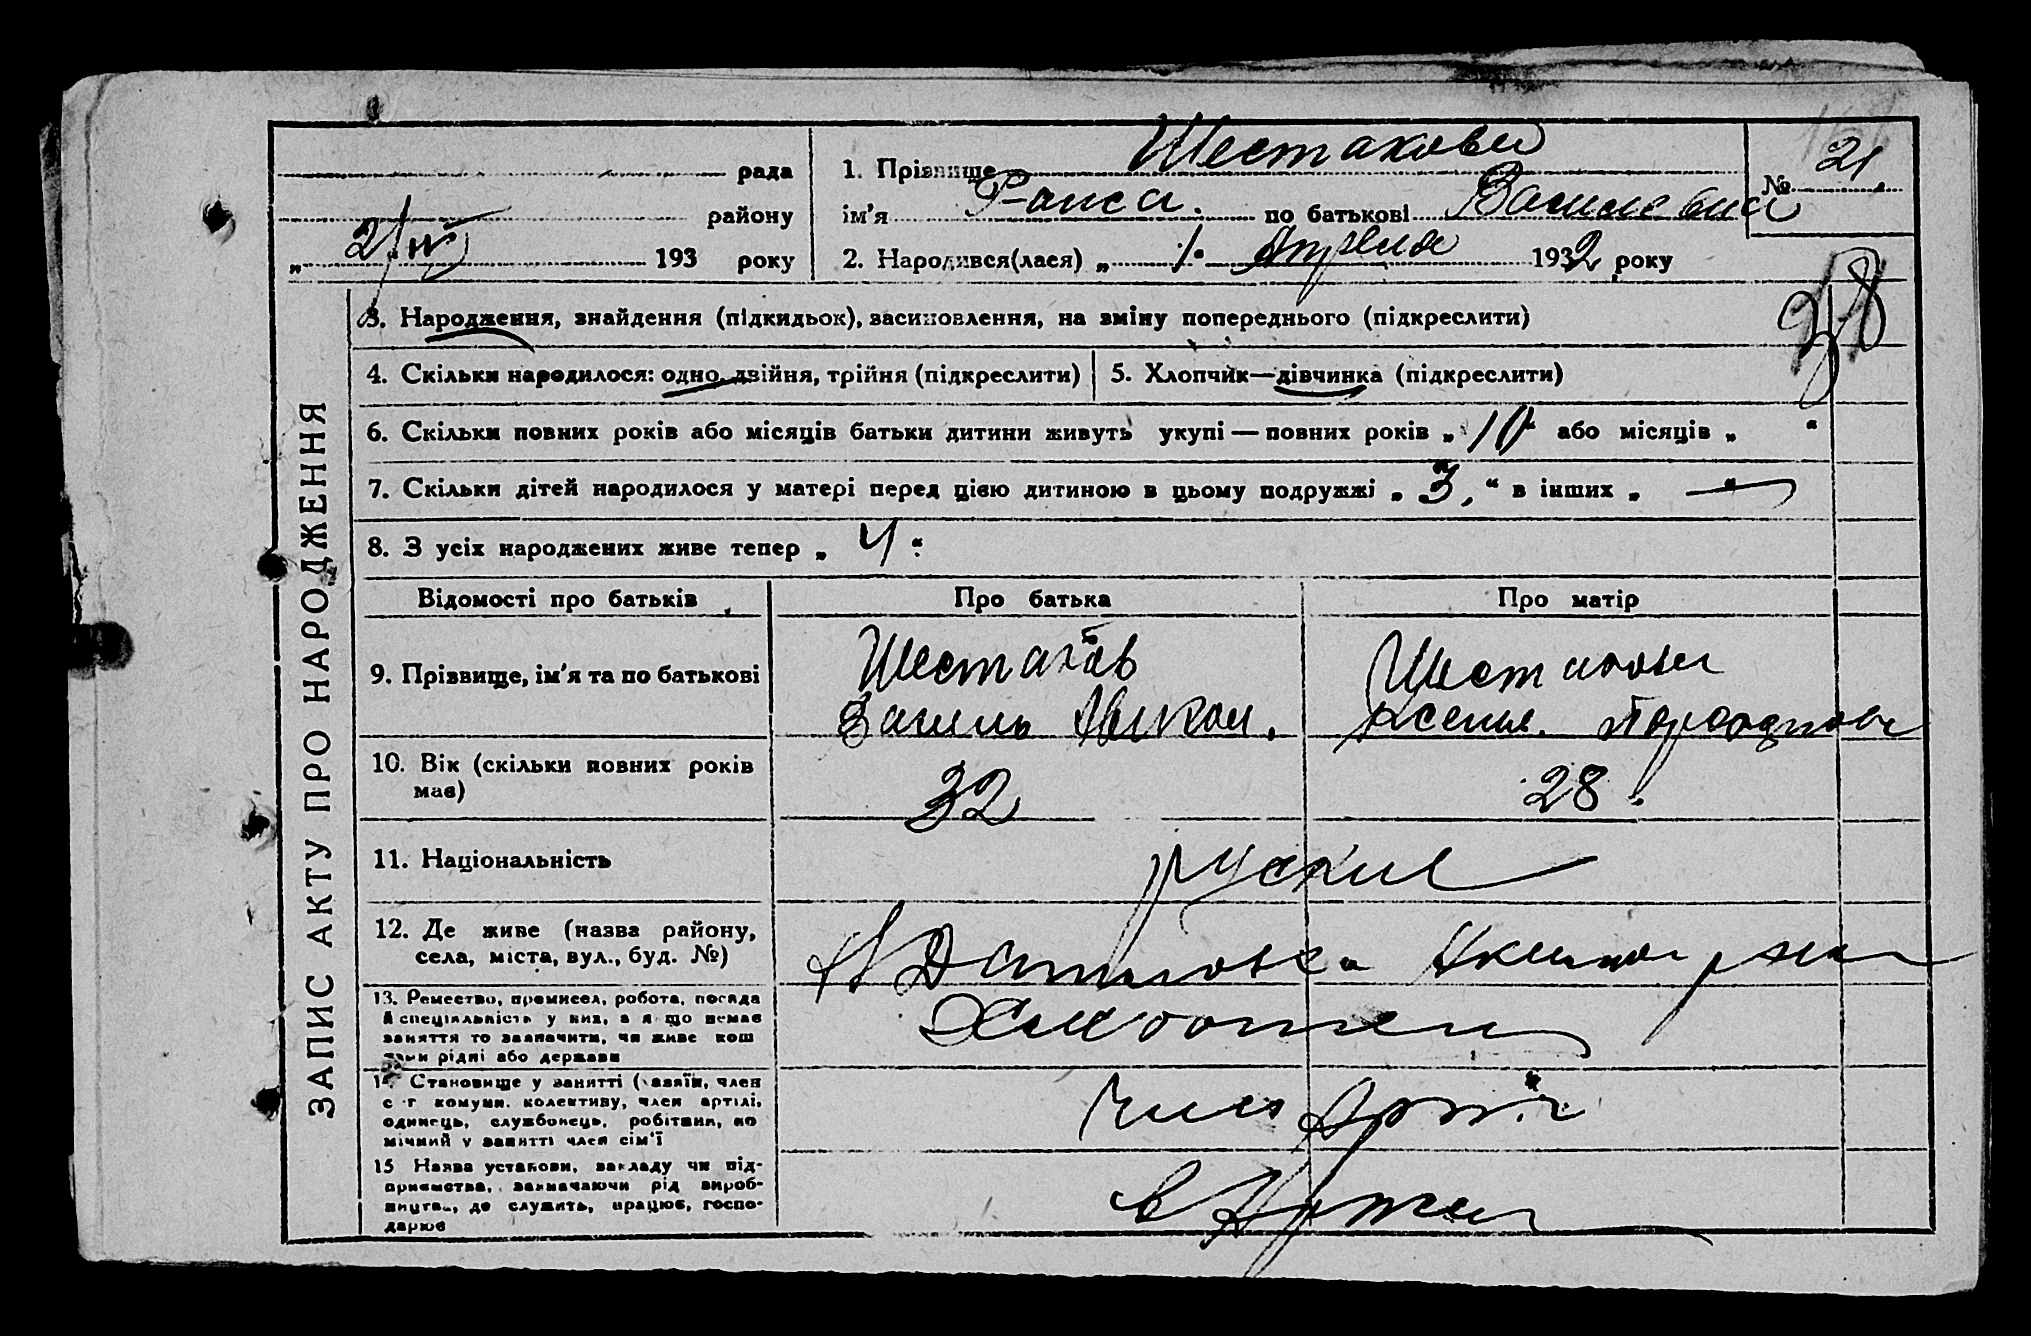 рада
району
„ 2/IV 193 року
1. Прізвище Шестакова
ім'я Раиса. по батькові Васильевна
2. Народився(лася) „ 1. Апреля 1932 року
№ 21.
38
ЗАПИС АКТУ ПРО НАРОДЖЕННЯ
3. Народження, знайдення (підкидьок), засиновлення, на зміну попереднього (підкреслити)
4. Скільки народилося: одно, двійня, трійня (підкреслити)
5. Хлопчик—дівчинка (підкреслити)
6. Скільки повних років або місяців батьки дитини живуть укупі — повних років „ 10 “ або місяців „ “
7. Скільки дітей народилося у матері перед цією дитиною в цьому подружжі „ 3, “ в інших „ — “
8. З усіх народжених живе тепер „ 4 “
Відомості про батьків
Про батька
Про матір
9. Прізвище, ім'я та по батькові
Шестаков
Шестакова
10. Вік (скільки повних років
має)
32
28.
11. Національність
руские
12. Де живе (назва району,
села, міста, вул., буд. №)
13. Ремество, промисел, робота, посада
й спеціяльність у них, а якщо немає
заняття то зазначити, чи живе кош
тами рідні або держави
14. Становище у занятті (хазяїн, член
с-г комуни. колективу, член артілі,
одинець, службовець, робітник, по
мічний у занятті член сім'ї
член Артели
15 Назва установи, закладу чи під-
приємства, зазначаючи рід вироб-
ництва, де служить, працює, госпо-
дарює
в Артели